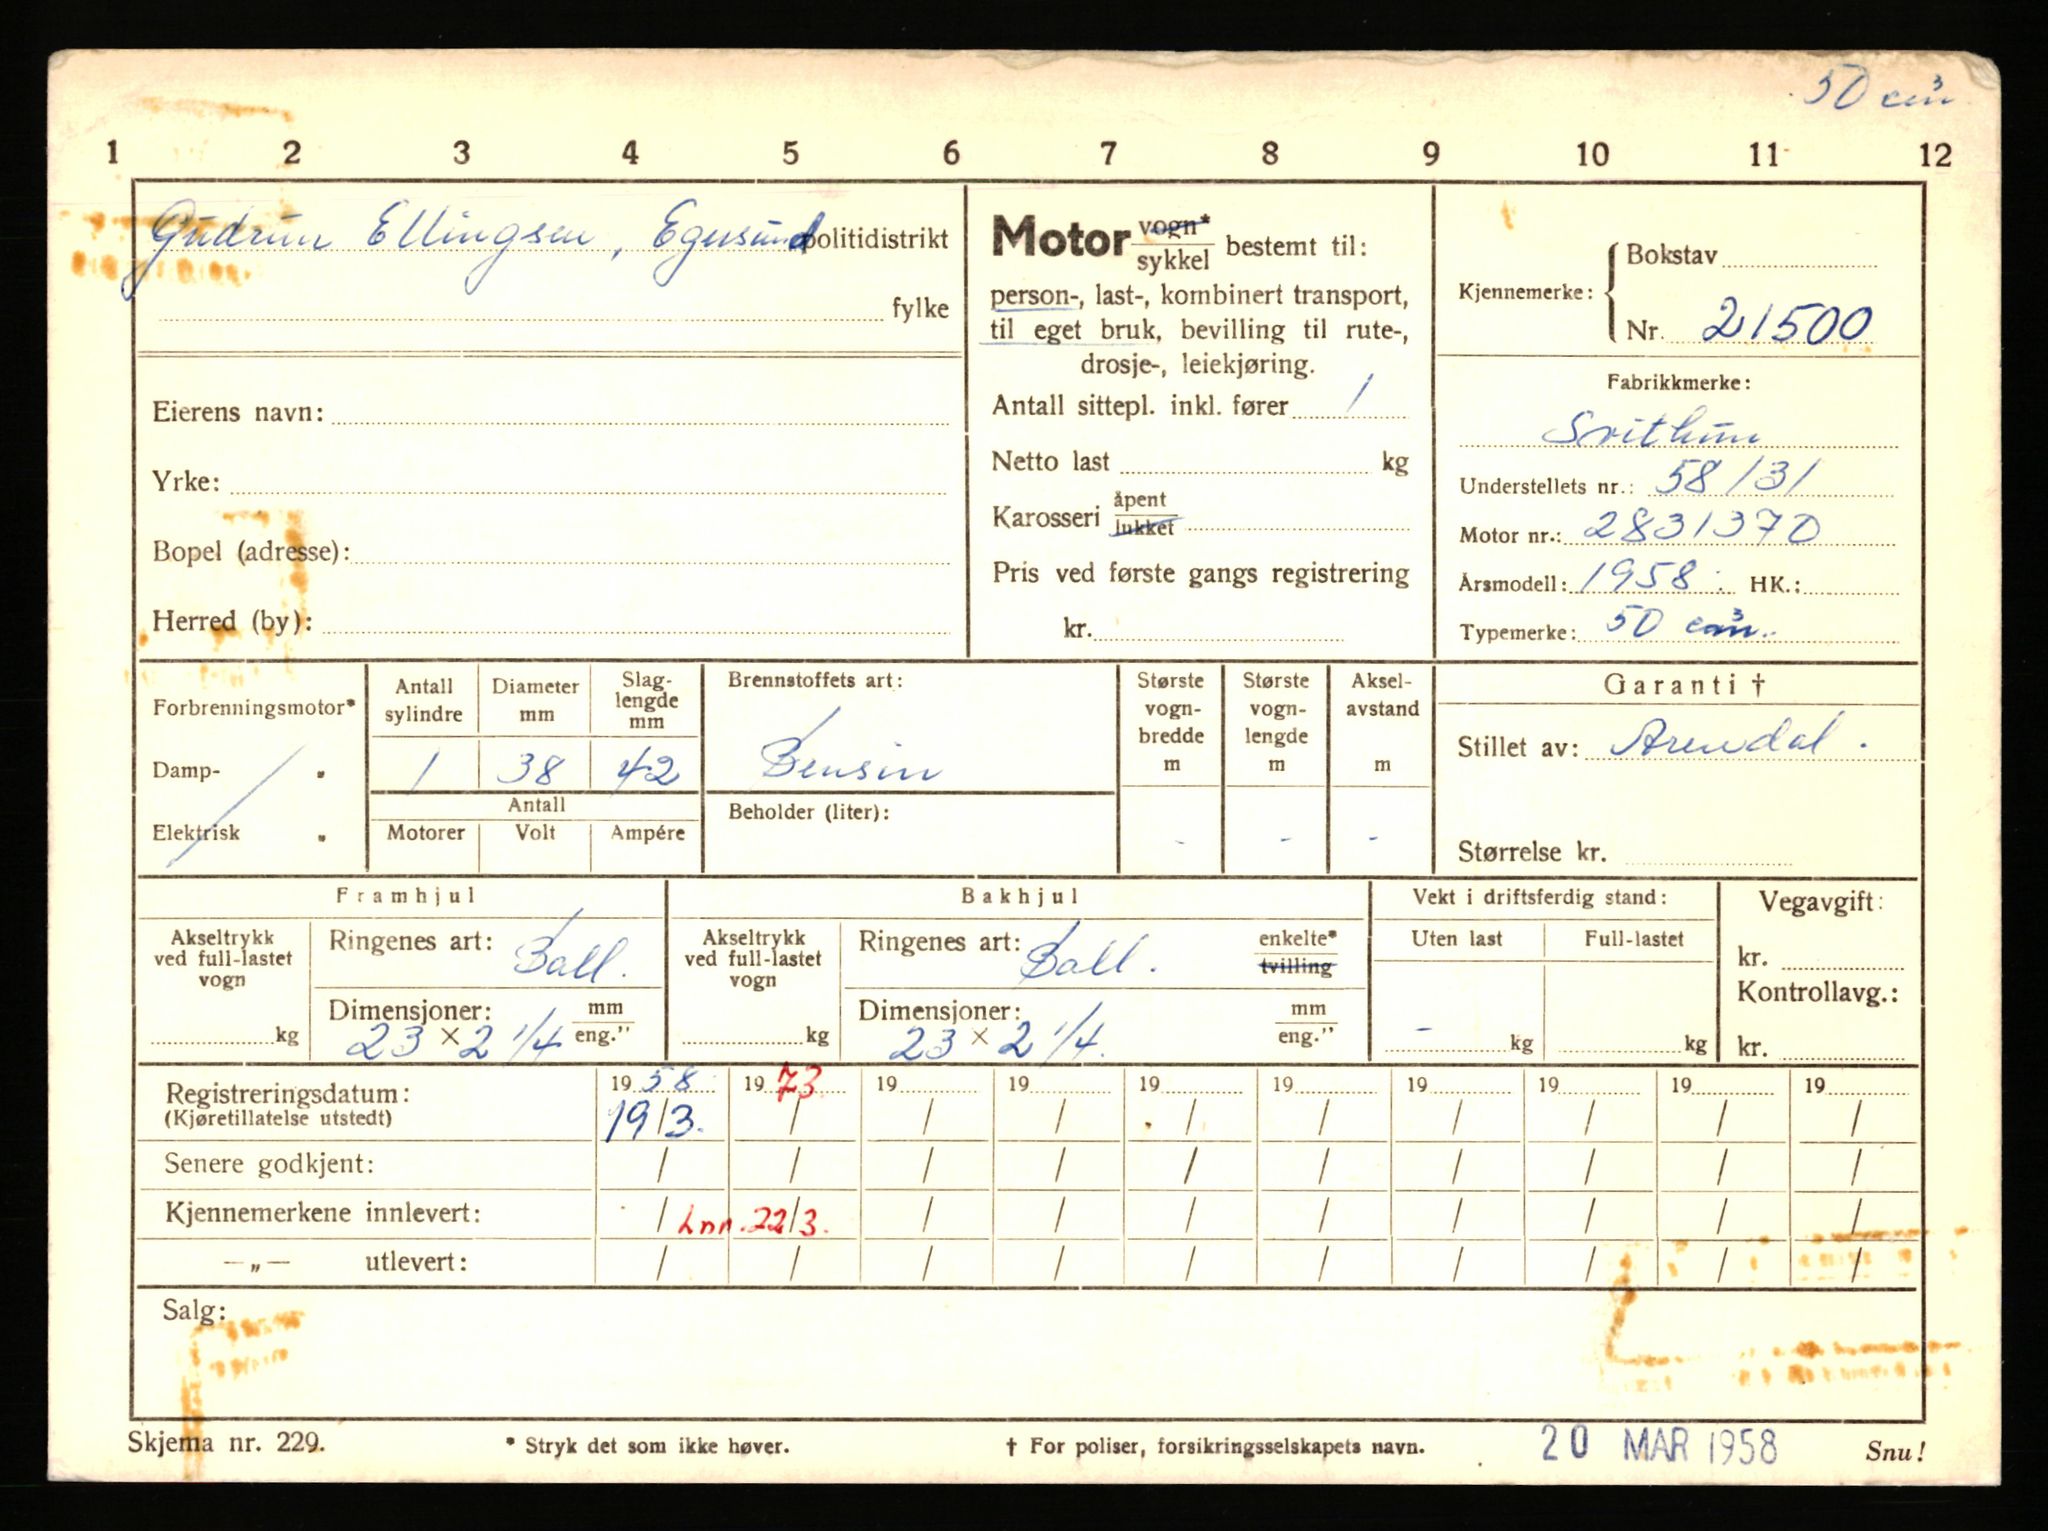 50 cm³
1 2 3 4 5 6 7 8 9 10 11 12
Gudrun Ellingsen, Egersund politidistrikt
fylke
Eierens navn:
Yrke:
Bopel (adresse):
Herred (by):
Motor vogn* / sykkel bestemt til:
person-, last-, kombinert transport,
til eget bruk, bevilling til rute-,
drosje-, leiekjøring.
Antall sittepl. inkl. fører 1
Netto last kg
Karosseri åpent / lukket
Pris ved første gangs registrering
kr.
Kjennemerke: Bokstav
Nr. 21500
Fabrikkmerke:
Svithun
Understellets nr.: 58131
Motor nr.: 2831370
Årsmodell: 1958 HK.:
Typemerke: 50 cm³.
Forbrenningsmotor*
Damp- "
Elektrisk "
Antall sylindre
1
Diameter mm
38
Slag-
lengde
mm
42
Antall
Motorer Volt Ampére
Brennstoffets art:
Bensin
Beholder (liter):
Største
vogn-
bredde
m
-
Største
vogn-
lengde
m
-
Aksel-
avstand
m
-
Garanti †
Stillet av: Arendal.
Størrelse kr.
Framhjul
Akseltrykk
ved full-lastet
vogn
kg
Ringenes art: Ball.
Dimensjoner: mm
23 x 2 1/4 eng."
Bakhjul
Akseltrykk
ved full-lastet
vogn
kg
Ringenes art: Ball. enkelte*
tvilling
Dimensjoner: mm
23 x 2 1/4. eng."
Vekt i driftsferdig stand:
Uten last Full-lastet
- kg kg
Vegavgift:
kr.
Kontrollavg.:
kr.
Registreringsdatum: 19 58 19 73 19 19 19 19 19 19 19 19
(Kjøretillatelse utstedt) 19/3. / / / / / / / / /
Senere godkjent: / / / / / / / / / /
Kjennemerkene innlevert: / Inn. 22/3. / / / / / / / /
—„— utlevert: / / / / / / / / / /
Salg:
Skjema nr. 229. * Stryk det som ikke høver. † For poliser, forsikringsselskapets navn. 20 MAR 1958 Snu!